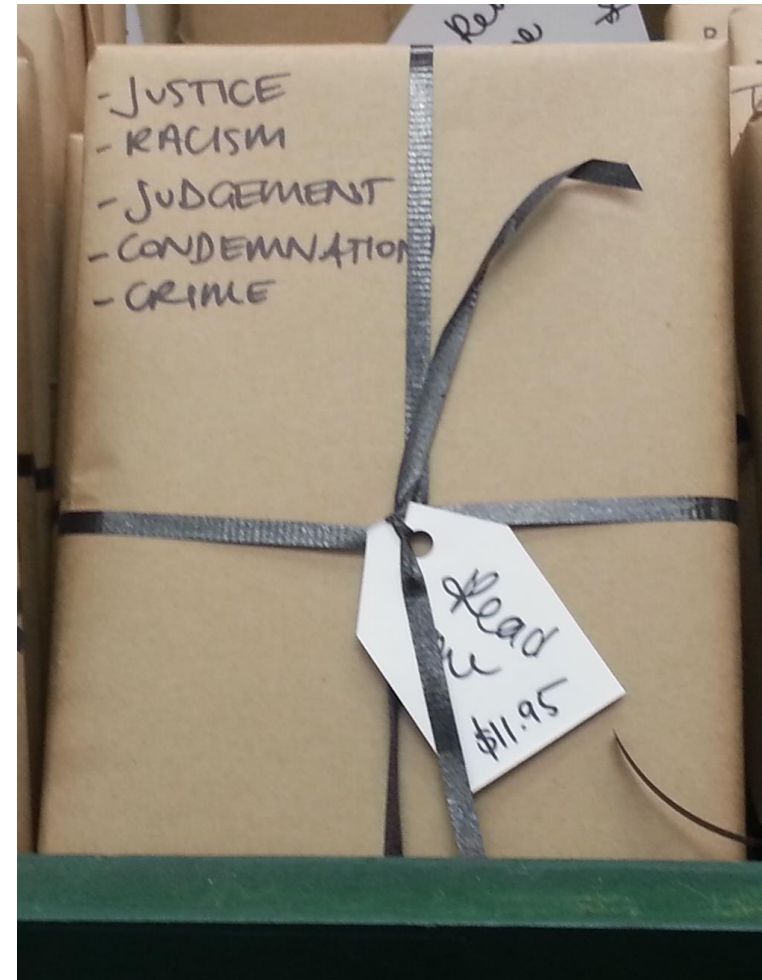 - JUSTICE
- RACISM
- JUDGEMENT
- CONDEMNATION
- CRIME
Read
$11.95